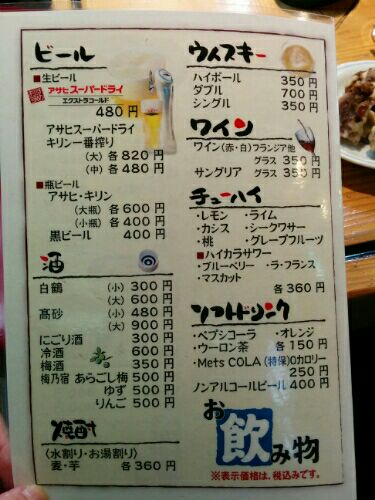 ビール
■生ビール
アサヒスーパードライ
エクストラコールド
480円
アサヒスーパードライ
キリン一番搾り
(大) 各820円
(中) 各480円
■瓶ビール
アサヒ・キリン
(大瓶) 各600円
(小瓶) 各400円
黒ビール 400円
酒
白鶴 (小) 300円
(大) 600円
髙砂 (小) 480円
(大) 900円
にごり酒 300円
冷酒 600円
梅酒 350円
梅乃宿 あらごし梅 500円
ゆず 500円
りんご 500円
焼酎
〈水割り・お湯割り〉
麦・芋 各360円
ウィスキー
ハイボール 350円
ダブル 700円
シングル 350円
ワイン
ワイン(赤・白)フランジア他
グラス 350円
サングリア グラス 350円
チューハイ
・レモン ・ライム
・カシス ・シークワサー
・桃 ・グレープフルーツ
■ハイカラサワー
・ブルーベリー ・ラ・フランス
・マスカット
各360円
ソフトドリンク
・ペプシコーラ ・オレンジ
・ウーロン茶 各150円
・Mets COLA(特保)0カロリー
250円
ノンアルコールビール 400円
お飲み物
※表示価格は、税込みです。